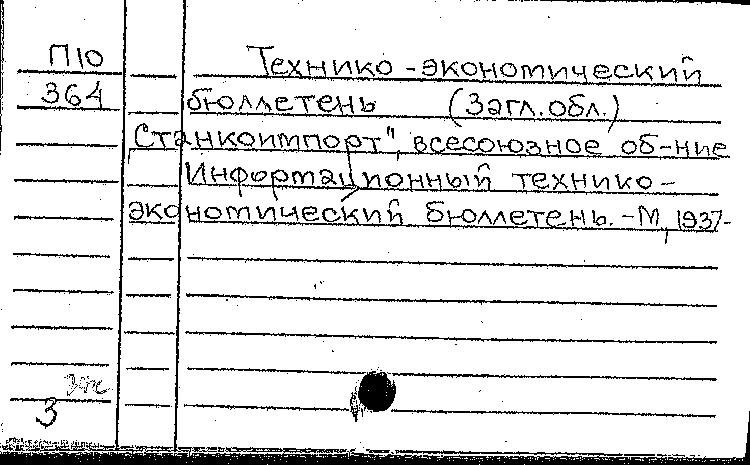 П10
364
Технико-экономический
бюллетень (Загл. обл.)
„Станкоимпорт", всесоюзное об-ние
Информационный технико-
экономический бюллетень. - М, 1937-
3